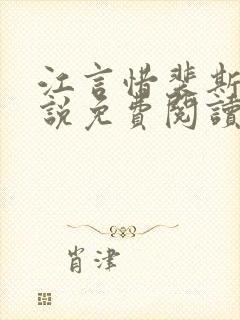 江言惜裴斯
說免費閱讀
肖津